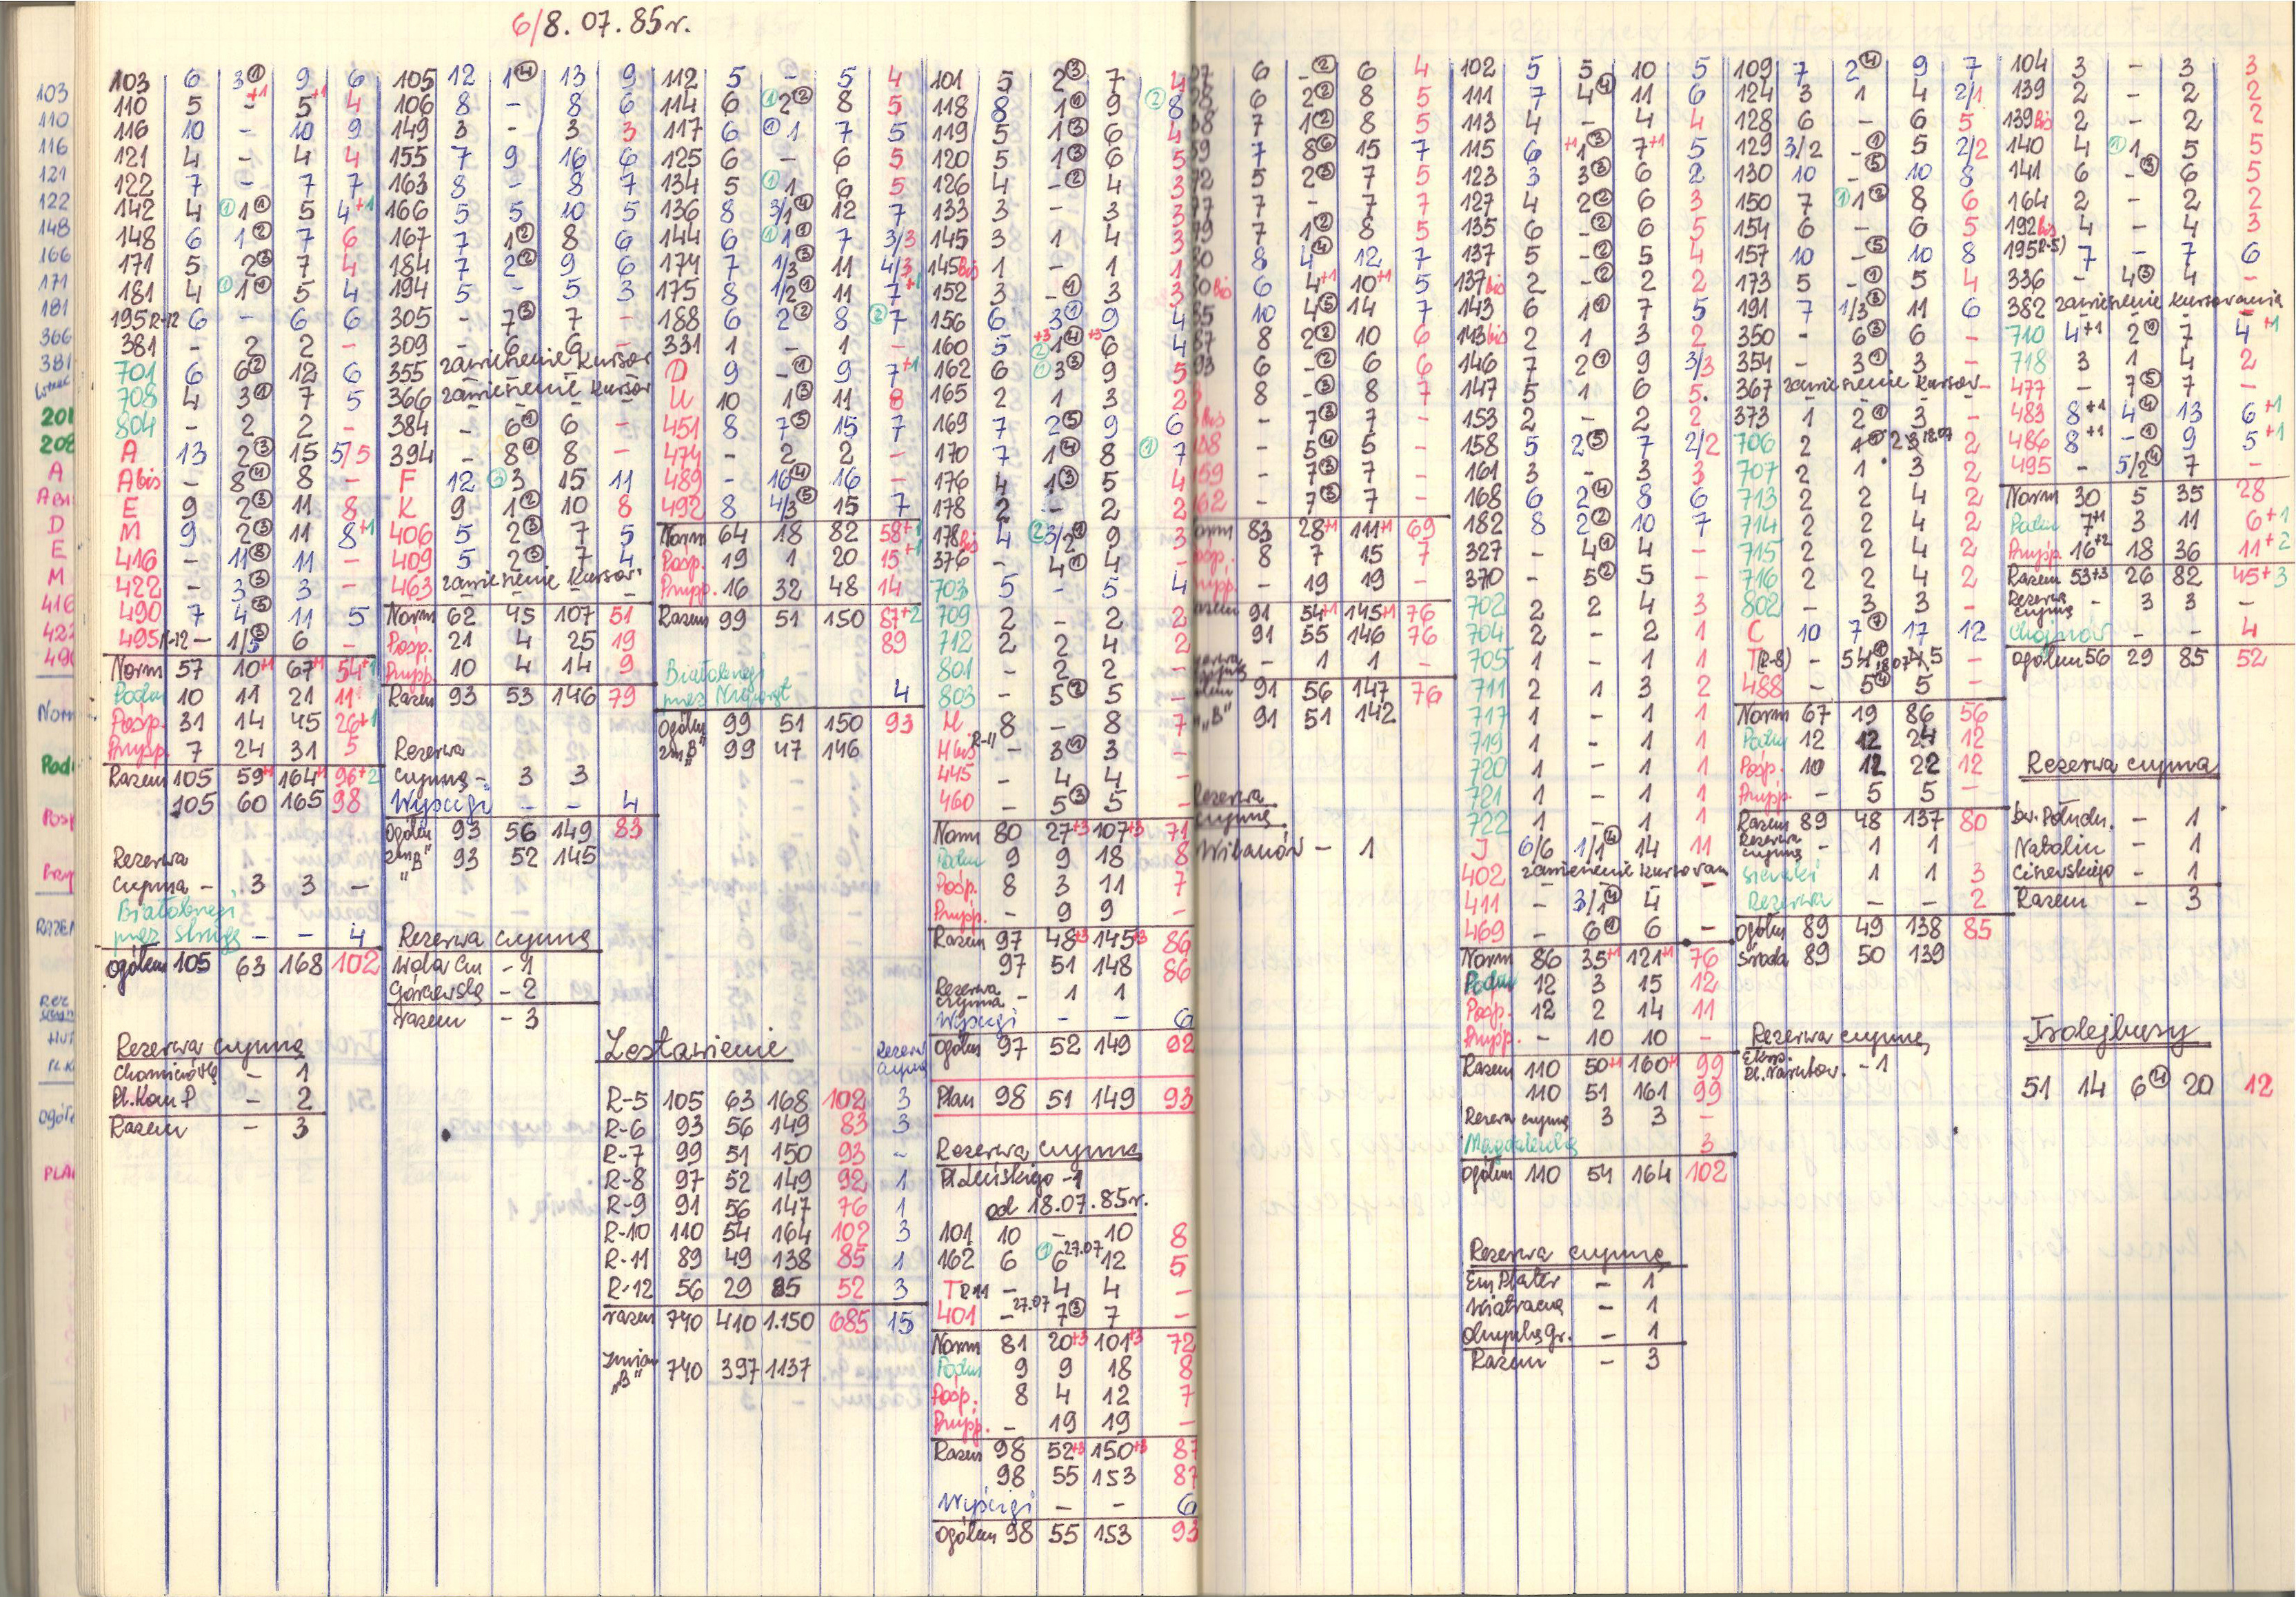 6/8.07.85r.
103 6 3① 9 6
110 5 -+1 5+1 4
116 10 - 10 9
121 4 - 4 4
122 7 - 7 7
142 4 ①1① 5 4+1
148 6 1② 7 6
171 5 2③ 7 4
181 4 ①1① 5 4
195R-12 6 - 6 6
381 - 2 2 -
701 6 6② 12 6
708 4 3① 7 5
804 - 2 2 -
A 13 2③ 15 5/5
Abis - 8④ 8 -
E 9 2③ 11 8
M 9 2③ 11 8+1
416 - 11⑧ 11 -
422 - 3③ 3 -
490 7 4⑤ 11 5
495R-12 - 1/5 6 -
Norm 57 10+1 67+1 54+1
Podm 10 11 21 11
Posp. 31 14 45 26+1
Przysp. 7 24 31 5
Razem 105 59+1 164+1 96+2
105 60 165 98
Rezerwa
czynna - 3 3 -
Białobrzegi
przez Strugę - - 4
Ogółem 105 63 168 102
Rezerwa czynna
Chomiczówka - 1
Pl.Kom P - 2
Razem - 3
105 12 1④ 13 9
106 8 - 8 6
149 3 - 3 3
155 7 9 16 6
163 8 - 8 7
166 5 5 10 5
167 7 1② 8 6
184 7 2② 9 6
194 5 - 5 3
305 - 7③ 7 -
309 - 6 6 -
355 zawieszenie kursow
366 zawieszenie kursow
384 - 6① 6 -
394 - 8① 8 -
F 12 ③3 15 11
K 9 1② 10 8
406 5 2③ 7 5
409 5 2③ 7 4
463 zawieszenie kursow
Norm 62 45 107 51
Posp. 21 4 25 19
Przysp. 10 4 14 9
Razem 93 53 146 79
Rezerwa
czynna - 3 3
Wyścigi - - 4
Ogółem 93 56 149 83
zm "B" 93 52 145
Rezerwa czynna
Wola Cm - 1
Górczewska - 2
razem - 3
112 5 - 5 4
114 6 ①2② 8 5
117 6 ①1 7 5
125 6 - 6 5
134 5 ①1 6 5
136 8 3/1④ 12 7
144 6 ①1① 7 3/3
174 7 1/3③ 11 4/3
175 8 1/2① 11 7+1
188 6 2② 8 ②7
331 1 - 1 -
D 9 -① 9 7+1
U 10 1③ 11 8
451 8 7⑤ 15 7
474 - 2 2 -
489 - 16④ 16 -
492 8 4/3⑤ 15 7
Norm 64 18 82 58+1
Posp. 19 1 20 15+1
Przysp. 16 32 48 14
Razem 99 51 150 87+2
89
Białobrzegi
przez Nieporęt 4
Ogółem 99 51 150 93
zm "B" 99 47 146
Zestawienie
Rezerw czynna
R-5 105 63 168 102 3
R-6 93 56 149 83 3
R-7 99 51 150 93 -
R-8 97 52 149 92 1
R-9 91 56 147 76 1
R-10 110 54 164 102 3
R-11 89 49 138 85 1
R-12 56 29 85 52 3
razem 740 410 1.150 685 15
zmian "B" 740 397 1137
101 5 2③ 7 4
118 8 1① 9 ②8
119 5 1③ 6 4
120 5 1③ 6 5
126 4 -② 4 3
133 3 - 3 3
145 3 1 4 3
145bis 1 - 1 1
152 3 -① 3 3
156 6 3① 9 4
160 5 ②1④+3 6+3 4
162 6 ①3③ 9 5
165 2 1 3 2
169 7 2⑤ 9 6
170 7 1④ 8 ①7
176 4 1③ 5 4
178 2 - 2 2
178bis 4 ②3/2① 9 3
376 - 4① 4 -
703 5 - 5 4
709 2 - 2 2
712 2 2 4 2
801 - 2 2 -
803 - 5② 5 -
H 8 - 8 7
H bis R-11 - 3① 3 -
445 - 4 4 -
460 - 5③ 5 -
Norm 80 27+3 107+3 71
Podm 9 9 18 8
Posp. 8 3 11 7
Przysp. - 9 9 -
Razem 97 48+3 145+3 86
97 51 148 86
Rezerwa czynna - 1 1
Wyścigi - - 6
Ogółem 97 52 149 92
Plan 98 51 149 93
Rezerwa czynna
Pl.Leńskiego -1
od 18.07.85r.
101 10 - 10 8
162 6 ①6 27.07 12 5
T R11 - 4 4 -
401 - 27.07 7③ 7 -
Norm 81 20+3 101+3 72
Podm 9 9 18 8
Posp. 8 4 12 7
Przysp. - 19 19 -
Razem 98 52+3 150+3 87
98 55 153 87
Wyścigi - - 6
Ogółem 98 55 153 93
6 -② 6 4
6 2② 8 5
7 1② 8 5
7 8⑥ 15 7
5 2③ 7 5
7 - 7 7
7 1② 8 5
8 4④ 12 7
bis 6 4+1 10+1 5
10 4⑤ 14 7
8 2② 10 6
6 -② 6 6
8 -③ 8 7
- 7③ 7 -
- 5④ 5 -
- 7③ 7 -
- 7③ 7 -
Norm 83 28+1 111+1 69
Posp. 8 7 15 7
- 19 19 -
91 54+1 145+1 76
91 55 146 76
- 1 1 -
91 56 147 76
"B" 91 51 142
Rezerwa
czynna
Wilanów - 1
102 5 5 10 5
111 7 4④ 11 6
113 4 - 4 4
115 6 +1 1③ 7+1 5
123 3 3③ 6 2
127 4 2② 6 3
135 6 -② 6 5
137 5 -② 5 4
137bis 2 -② 2 2
143 6 1① 7 5
143bis 2 1 3 2
146 7 2① 9 3/3
147 5 1 6 5.
153 2 - 2 2
158 5 2⑤ 7 2/2
161 3 - 3 3
168 6 2④ 8 6
182 8 2② 10 7
327 - 4① 4 -
370 - 5② 5 -
702 2 2 4 3
704 2 - 2 1
705 - 1 1 1
711 2 1 3 2
717 1 - 1 1
719 1 - 1 1
720 1 - 1 1
721 1 - 1 1
722 1 - 1 1
J 6/6 1/1④ 14 11
402 zawieszenie kursowan
411 - 3/1④ 4 -
469 - 6① 6 -
Norm 86 35+1 121+1 76
Podm 12 3 15 12
Posp. 12 2 14 11
Przysp. - 10 10 -
Razem 110 50+1 160+1 99
110 51 161 99
Rezerwa czynna 3 3 -
Magdalenka 3
Ogółem 110 54 164 102
Rezerwa czynna
Em Plater - 1
Wiatraczna - 1
Olimpka Gr. - 1
Razem - 3
109 7 2④ 9 7
124 3 1 4 2/1
128 6 - 6 5
129 3/2 -① 5 2/2
130 10 -⑤ 10 8
150 7 ①1② 8 6
154 6 - 6 5
157 10 -⑤ 10 8
173 5 -① 5 4
191 7 1/3③ 11 6
350 - 6③ 6 -
354 - 3① 3 -
367 zawieszenie kursow -
373 1 2① 3 -
706 2 1 2 3 18.07 2
707 2 1 3 2
713 2 2 4 2
714 2 2 4 2
715 2 2 4 2
716 2 2 4 2
802 - 3 3 -
C 10 7① 17 12
T(R-8) - 5 4① 18.07 4 5 -
488 - 5④ 5 -
Norm 67 19 86 56
Podm 12 12 24 12
Posp. 10 12 22 12
Przysp. - 5 5 -
Razem 89 48 137 80
Rezerwa czynna - 1 1
1 1 3
Rezerwa - - 2
Ogółem 89 49 138 85
środa 89 50 139
Rezerwa czynna
Eksp.
Pl. Narutow. - 1
104 3 - 3 3
139 2 - 2 2
139bis 2 - 2 2
140 4 ①1 5 5
141 6 -③ 6 5
164 2 - 2 2
192bis 4 - 4 3
195(R-5) 7 - 7 6
336 - 4③ 4 -
382 zawieszenie kursowania
710 4+1 2① 7 4+1
718 3 1 4 2
477 - 7⑤ 7 -
483 8+1 4④ 13 6+1
486 8+1 -① 9 5+1
495 - 5/2④ 7 -
Norm 30 5 35 28
Podm 7+1 3 11 6+1
Przysp. 16+2 18 36 11+2
Razem 53+3 26 82 45+3
Rezerwa czynna - 3 3 -
Chojnów - - 4
Ogółem 56 29 85 52
Rezerwa czynna
Dw. Południ. - 1
Natolin - 1
Ciszewskiego - 1
Razem - 3
Trolejbusy
51 14 6④ 20 12